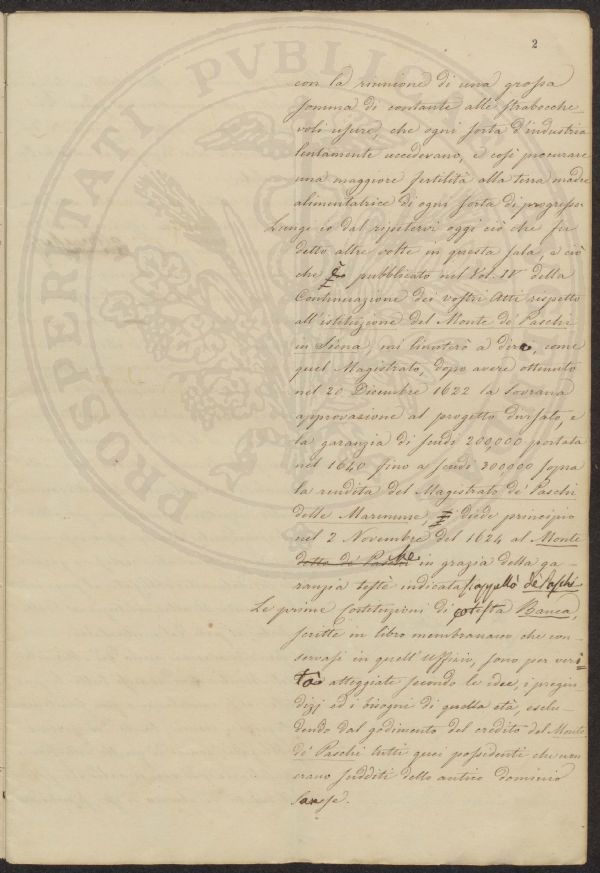 2
con la riunione di una grossa
somma di contante alle strabocche_
voli usure, che ogni sorta d'industria
lentamente uccedevano, e così procurare
una maggiore fertilità alla terra madre
alimentatrice di ogni sorta di progresso
Lunge io dal ripetervi oggi ciò che fu
detto altre volte in questa sala, e ciò
che è pubblicato nel Vol. IV della
Continuazione dei vostri Atti rispetto
all'istituzione del Monte de' Paschi
in Siena, mi limiterò a dire, come
quel Magistrato, dopo avere ottenuto
nel 20 Dicembre 1622 la Sovrana
approvazione al progetto divisato, e
la garanzia di scudi 200,000 portata
nel 1640 fino a scudi 300000 sopra
la rendita del Magistrato de' Paschi
delle Maremme, diede principio
nel 2 Novembre del 1624 al Monte
detto de' Paschi che in grazia della ga_
ranzia testè indicata s'appellò de' Paschi
Le prime Costituzioni di cotesta Banca,
scritte in libro membranaceo che con_
servasi in quell'Uffizio, sono per veri_
tà atteggiate secondo le idee, i pregiu_
dizj ed i bisogni di quella età, esclu_
dendo dal godimento del credito del Monte
de' Paschi tutti quei possidenti che non
erano sudditi dello antico dominio
Sanese.
PROSPERITATI PVBLICAE